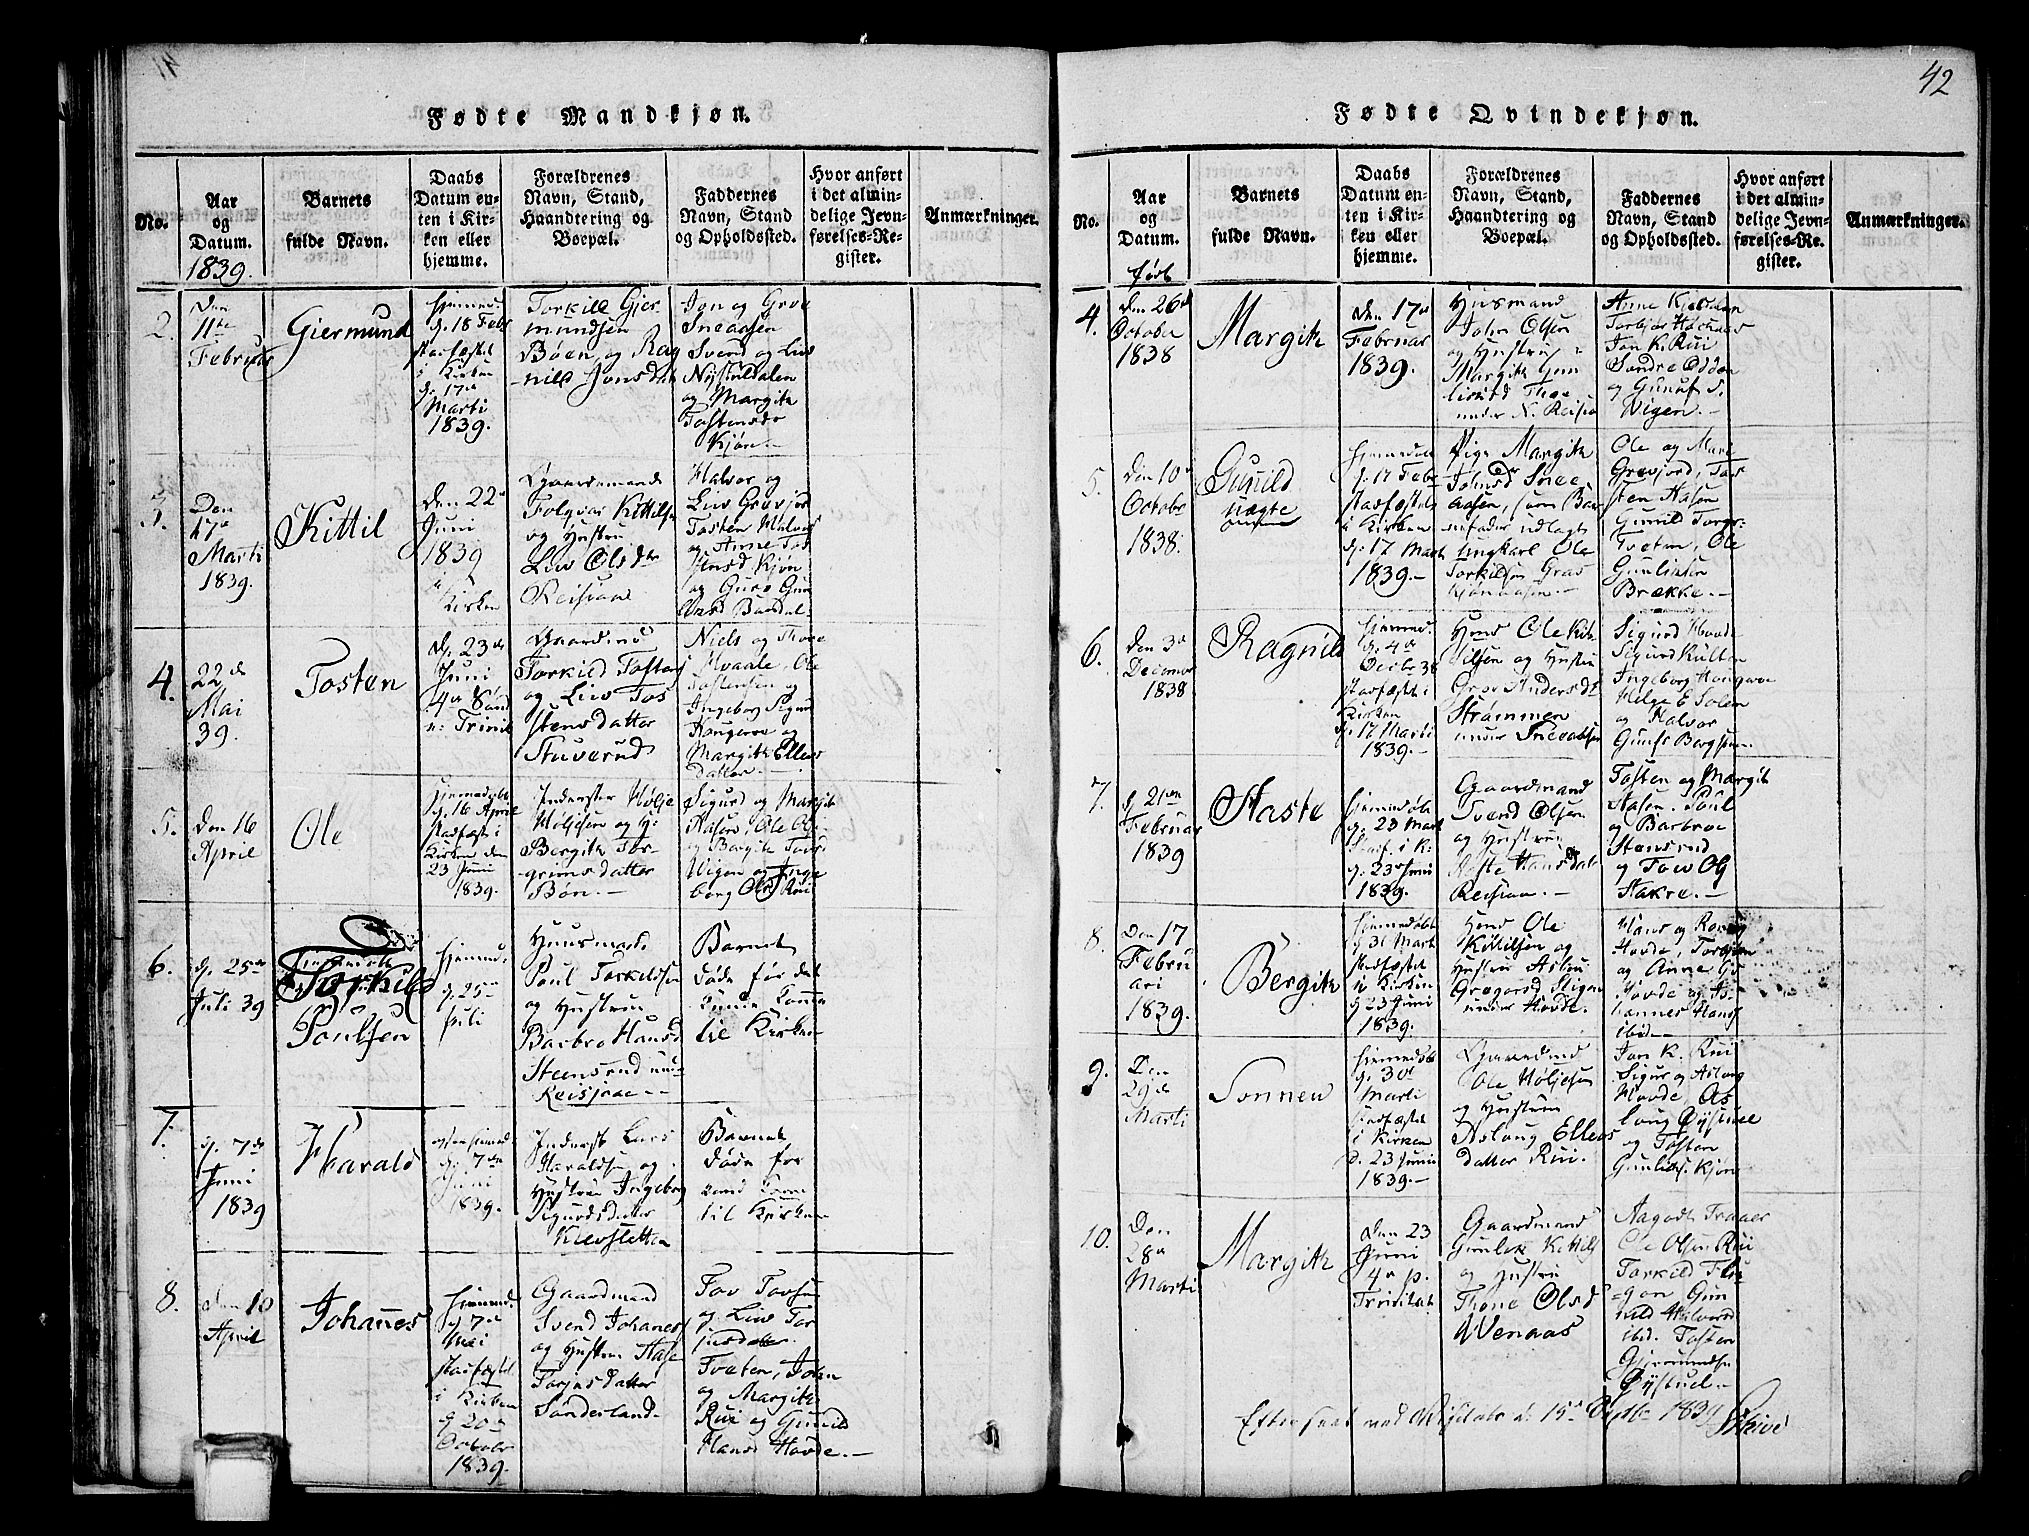 42
Fødte Mandkjøn.
No.
Aar
og
Datum.
1839.
Barnets
fulde Navn.
Daabs
Datum en-
ten i Kir-
ken eller
hjemme.
Forældrenes
Navn, Stand,
Haandtering og
Boepæl.
Faddernes
Navn, Stand
og Opholdssted.
Hvor anført
i det almin-
delige Jevn-
førelses-Re-
gister.
Anmærkninger.
2.
Den
11te
Februar
Giermund
hjemmed.
d. 18 Febr
stadfæstet
i Kirken
d. 17de
Marti
1839.
Torkild Gjer
mundsen
Bøen, og Rag
nild Jonsdatt
Jon og Groe
Sneaasen
Svend og Liv
Nystuldalen
og Margith
Tostensdr
Kjøn
3.
Den
17de
Marti
1839.
Kittil
Den 22de
Juni
1839
i
Kirken
Gaardmand
Folqvar Kittilsen
og Hustru
Liv Olsdtr
Reisjaae
Halvor og
Liv Grovjor
Tosten
og Anne Tos
tensd Kjøn
og Guro Gun
4.
22de
Mai
39.
Tosten
d. 23de
Juni
4de Sønd
n: Trinit
Gaardmd
Torkild Tostens
og Liv Tos
stensdatter
Stuverud
Niels og Thore
Hvaale, Ole
Tostensen og
Ingeborg
og
Margith Ellevs
datter.
5.
Den 16
April
Ole
hjemmedøbt
d. 16 April
stadfæst i
Kirken den
23 Juni
1839.
Inderster Høljе
Høljesen og H:
Bergith Tor-
grimsdatter
Bøn.
Sigurd og Margit
Aasen, Ole Ols
og Bergith
Vigen og Inge
borg Ols Rui
6.
d. 25de
Juli 39
Torkild
Poulsen
hjemmd.
d. 25de
Juli
Huusmand
Poul Torkildsen
og Hustru
Barbro Hansd
Steensrud un:
Reisjaae
Barnet
døde før det
kunde komme
til Kirken
7.
d. 7de
Juni
1839
Harald
hjemmed
d. 7de
Juni
1839.
Inderst Lars
Haraldsen og
Hustrue Ingeborg
Sigurdsdatter
Kleosletten
Barnet
døde før
kund komme
til Kirken
8.
Den 10
April
Johannes
hjemmd.
d. 7de
Mai
stadfæstet
i Kirken
d. 20de
October
1839.
Gaardmand
Svend Johannes
og Hustru Aase
Torjusdatter
Sønderland
Tov Tovsen
og Liv Tor
jusdatter
Tveten, John
og Margith
Rui og Gunild
Hansd Hovde.
Fødte Qvindekjøn.
No.
Aar
og
Datum.
født
Barnets
fulde Navn.
Daabs
Datum en-
ten i Kir-
ken eller
hjemme.
Forældrenes
Navn, Stand,
Haandtering og
Boepæl.
Faddernes
Navn, Stand
og Opholdssted.
Hvor anført
i det almin-
delige Jevn-
førelses-Re-
gister.
Anmærkninger.
4.
Den 26de
October
1838
Margith
Den 17de
Februar
1839.
Husmand
John Olsen
og Hustru
Margith Gun
Thore
under N. Reisjaa
Anne
Jon K. Rui
Sondre Odden
og
Vigen.
5.
Den 10de
October
1838.
Gunild
uægte
hjemmedøbt
d. 17 Febr
stadfæstet
i Kirken
d. 17 Marti
1839.
Pige Margith
Johnsdr Snee
aasen, som Bar
nefader udlagt
Ungkarl Ole
Torkildsen Gras
Ole og Mari
Grovjord, Tor
sten Aasen
Gunild Torgr:
Tveten, Ole
Gunliksen
Brække.
6.
Den 3de
December
1838
Ragnild
hjemmed.
d. 4de
Decbr 38
stadfæstet i
Kirken
d. 17 Marti
1839.
Hmd Ole Kit
tilsen og Hustru
Groe Andersdt
Strømmen
under Sneaasen
Sigurd Hovde
Sigurd Kulten
Ingeborg
Helge E
og Halvor
7.
d. 21den
Februar
1839
Aaste
hjemmedøbt
d. 23 Marti
Stadf. i K.
d. 23de Juni
1839.
Gaardmand
Svend Olsen
og Hustrue
Aaste Hansdatt
Reisjaa.
Tosten og Margit
Aasen. Poul
og Barbroe
Stensrud
og Tow Ols
Hakre.
8.
Den 17
Febru
ari
1839.
Bergith
hjemmedøbt
d. 31 Marti
stadfæstet
i Kirken
d. 23 Juni
1839.
Hmd Ole
Kittilsen og
Hustrue Aslou
Gregarsd
under Hovde.
Hans og
Hovde, Torbjørn
og Anne
Hovde og Jo
hannes Hansd
ibid.
9.
Den
29de
Marti
Tonnew
hjemmedøbt
d. 30te
Marti
stadfæstet
i Kirken
d. 23 Juni
1839.
Gaardmd
Ole Høljesen
og Hustrue
Aslaug Ellevs
datter Rui.
Jon K. Rui
Sigur og Aslaug
Hovde, As
laug Øystuel
og Tosten
Gunliks. Kjøn
10.
Den
28de
Marti
Margith
Den 23
Juni
4de p.
Trinitat
Gaardmand
Gunlek Kittils
og Hustru
Thone Olsd
Wenaas
Aagodt Traaer
Ole Olsen Rui
Torkild Flu
gon Gun
nild Halvord
ibid. Tosten
Gjermundsen
Øystuel
Efterseet ved Visitats d: 15de Septbr 1839